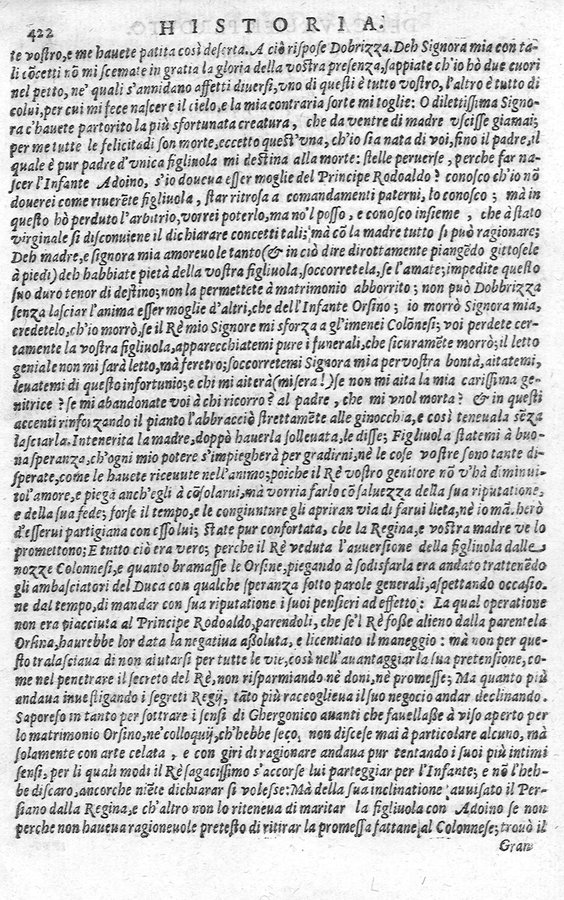 422 HISTORIA.
te vostro, e me hauete patita così deserta. A ciò rispose Dobrizza. Deh Signora mia con ta-
li cõcetti nõ mi scemate in gratia la gloria della vostra presenza, sappiate ch'io hò due cuori
nel petto, ne' quali s'annidano affetti diuersi, vno di questi è tutto vostro, l'altro è tutto di
colui, per cui mi fece nascere il cielo, e la mia contraria sorte mi toglie: O dilettissima Signo-
ra c'hauete partorito la più sfortunata creatura, che da ventre di madre vscisse giamai;
per me tutte le felicità di son morte, eccetto quest'vna, ch'io sia nata di voi, fino il padre, il
quale è pur padre d'vnica figliuola mi destina alla morte: stelle peruerse, perche far na-
scer l'Infante Adoino, s'io doueua esser moglie del Principe Rodoaldo? conosco ch'io nõ
douerei come riuerẽte figliuola, star ritrosa a comandamenti paterni, lo conosco; mà in
questo hò perduto l'arbitrio, vorrei poterlo, ma no'l posso, e conosco insieme, che à stato
virginale si disconuiene il dichiarare concetti tali; mà cõ la madre tutto si può ragionare;
Deh madre, e signora mia amoreuole tanto (& in ciò dire direttamente piangẽdo gittosele
à piedi) deh habbiate pietà della vostra figliuola, soccorretela, se l'amate; impedite questo
suo duro tenor di destino; non la permettete à matrimonio abborrito; non può Dobbrizza
senza lasciar l'anima esser moglie d'altri, che dell'Infante Orsino; io morrò Signora mia,
credetelo, ch'io morrò, se il Rè mio Signore mi sforza a gl'imenei Colõnesi; voi perdete cer-
tamente la vostra figliuola, apparecchiatemi pure i funerali, che sicuramẽte morrò; il letto
geniale non mi sarà letto, mà feretro; soccorretemi Signora mia per vostra bontà, aitatemi,
leuatemi di questo infortunio; e chi mi aiterà (misera!) se non mi aita la mia carissima ge-
nitrice? se mi abandonate voi à chi ricorro? al padre, che mi vuol morta? & in questi
accenti rinforzando il pianto l'abbracciò strettamẽte alle ginocchia, e così teneuala sẽza
lasciarla. Intenerita la madre, doppò hauerla solleuata, le disse; Figliuola statemi à buo-
na speranza, ch'ogni mio potere s'impiegherà per gradirui, nè le cose vostre sono tante di-
sperate, come le hauete riceuute nell'animo; poiche il Rè vostro genitore nõ v'hà diminui-
to l'amore, e piega anch'egli à cõsolarui, mà vorria farlo cõ saluezza della sua riputatione,
e della sua fede; forse il tempo, e le congiunture gli apriran via di farui lieta, nè io mãcherò
d'esserui partigiana con esso lui; state pur confortata, che la Regina, e vostra madre ve lo
promettono; E tutto ciò era vero; perche il Rè veduta l'auuersione della figliuola dalle
nozze Colonnesi, e quanto bramasse le Orsine, piegando à sodisfarla era andato trattenẽdo
gli ambasciatori del Duca con qualche speranza sotto parole generali, aspettando occasio-
ne dal tempo, di mandar con sua riputatione i suoi pensieri ad effetto: La qual operatione
non era piacciuta al Principe Rodoaldo, parendoli, che se'l Rè foße alieno dalla parentela
Orsina, haurebbe lor data la negatiua aßoluta, e licentiato il maneggio: mà non per que-
sto tralasciaua di non aiutarsi per tutte le vie, così nell'auantaggiar la sua pretensione, co-
me nel penetrare il secreto del Rè, non risparmiando nè doni, nè promesse; Ma quanto più
andaua inuestigando i segreti Regij, tãto più raccoglieua il suo negocio andar declinando.
Saporeso in tanto per sottrare i sensi di Ghergonico auanti che fauellaße à viso aperto per
lo matrimonio Orsino, ne' colloquij, ch'hebbe seco, non discese mai à particolare alcuno, mà
solamente con arte celata, e con giri di ragionare andaua pur tentando i suoi più intimi
sensi, per li quali modi il Rè sagacissimo s'accorse lui parteggiar per l'Infante; e nõ l'heb-
be discaro, ancorche niẽte dichiarar si volesse: Mà della sua inclinatione auuisato il Per-
siano dalla Regina, e ch'altro non lo riteneua di maritar la figliuola con Adoino se non
perche non haueua ragioneuole pretesto di ritirar la promessa fattane al Colonnese; trouò il
Gran